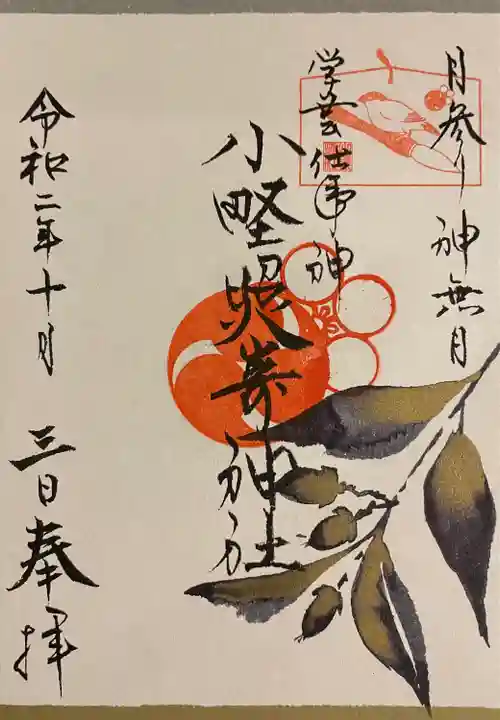 月参り 神無月
学芸仕事神
小野照崎神社
令和二年十月 三日奉拝